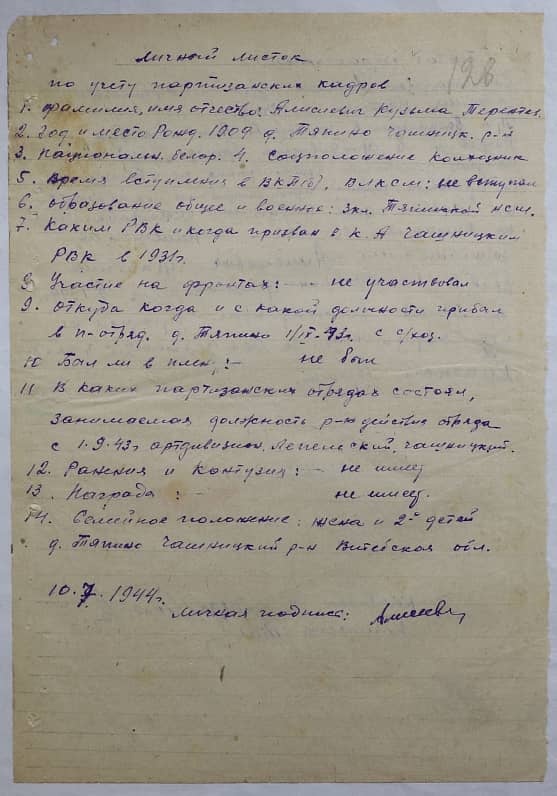 Личный листок
126
по учету партизанских кадров:
1. Фамилия, имя отчество: Алисиевич Кузьма Терентев.
2. Год и место Рожд. 1909 д. Тяпино Чашницк. р-й
3. Национальн. белор. 4. Соцположение Колхозник
5. Время вступления в ВКП(б), ВЛКСМ: не вступал
6. образование общее и военное: 3кл. Тяпинской нсш.
7. Каким РВК и когда призван в К.А Чашницким
РВК в 1931г.
8 Участие на фронтах: - не участвовал
9. Откуда когда и с какой должности прибыл
в п-отряд. д. Тяпино 1/IX-43г. с с/хоз.
10 Был ли в плену: - не был
11 В каких партизанских отрядах состоял,
занимаемая должность р-н действия отряда
с 1.9.43г артдивизион, Лепельский, Чашницкий.
12. Ранения и Контузия: - не имеет
13. Награда: - не имеет.
14. Семейное положение: жена и 2-й детей
д. Тяпино Чашницкий р-н Витебская обл.
10.7.1944г.
личная подпись: